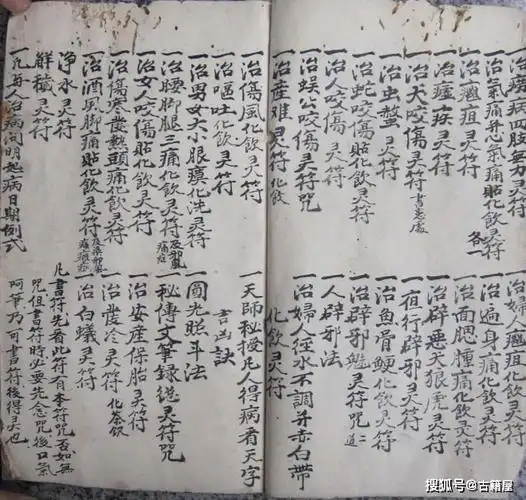 一治癆病四肢無力灵符
一治氣痛并心氣痛貼化飲灵符 各一
一治癰疽灵符
一治瘧疾灵符
一治犬咬傷灵符 書患處
一治虫螫灵符
一治蛇咬傷灵符貼化飲
一治人咬傷灵符
一治蜈公咬傷灵符咒
一治産难灵符 化飲
一治婦人
一治遍身痛化飲灵符
一治面腮腫痛化飲灵符
一治辟悪天狼虎灵符
一夜行辟邪灵符
一治魚骨鯁化飲灵符
一治辟邪魁灵符咒 二道
一人辟邪法
一治婦人徑水不調并赤白帶
化飲灵符
一治傷風化飲灵符
一治嘔吐化飲灵符
一治男女大小眼痛化洗灵符
一治腰脚腿三痛化飲灵符 及邪風痛症
一治女人咬傷貼化飲灵符
一治傷寒發熱頭痛化飲灵符
一治酒風脚痛貼化飲灵符
净水灵符
解穢灵符
一凡与人治病問明起病日期例式
一天師秘授凡人得病看天字
吉凶訣
一圓光照斗法
一秘傳文筆録遣灵符咒
一治安産保胎灵符
一治發冷灵符 化茶飲
一治白蟻灵符
凡書符先看此符有本符咒否如無
咒但書符時必要先念咒後口氣
呵筆乃可書灵符後得灵也
搜狐号@古籍屋